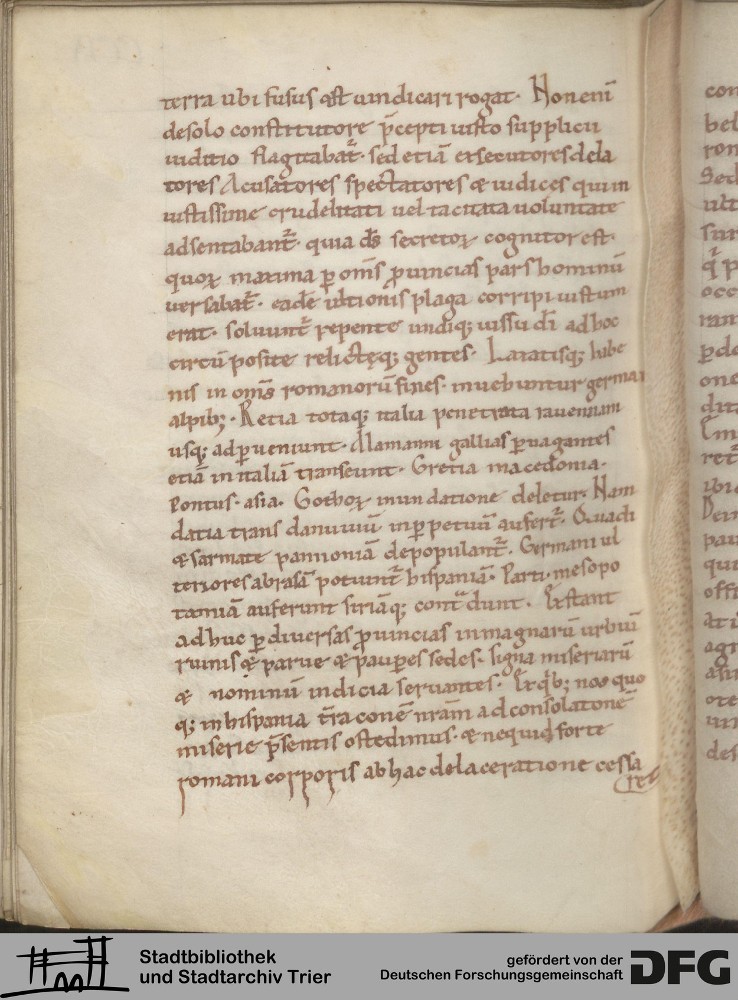 terra ubi fusus ÷ vindicari rogat. Non eni᷒
de solo constitutore p̄cepti iusto supplicii
iuditio flagitabat̄. sed etiā exsecutores dela
tores Acusatores spectatores & iudices qui im
iustissime crudelitati vel tacitata voluntate
adsentabant̄. quia ds̄ secretoꝝ cognitor est.
quoꝝ maxima ꝑ om̄s ꝓuincias pars hominū
versabat̄. eadē ultionis plaga corripi iustum
erat. soluunt̄ repente undiq; iussu dī ad hoc
circūposite relicteq; gentes. Laxatisq; habe
nis in om̄s romanorū fines. inuehuntur germani
alpib;. Retia totaq; italia penetrata rauennam
usq; adꝑueniunt. Alamanni gallias ꝑuagantes
etiā in italiā transeunt. Gretia macedonia.
Pontus. asia. Gothoꝝ inundatione deletur. Nam
datia trans danuuiū in perpetuū aufert̄. Quadi
& sarmate pannoniā depopulant̄. Germani ul
teriores abrasā potiunt̄ hispaniā. Parti mesopo
tamiā auferunt siriāq; cont̄dunt. Exstant
adhuc ꝑ diuersas ꝓuincias in magnarū urbiū
ruinis & parue & pauꝑes sedes. signa miseriarū
& nominū indicia servantes. Ex qb; nos quo
q; in hispania t̄raconē nrām ad consolationē
miserie p̄sentis ostedimus. & ne quid forte
romani corporis ab hac delaceratione cessa
ret
con
bel
ron
Sed
ulti
sur
occ
ram
ꝑdo
one
dita
ret̄
pau
qui
offi
at
agr
ote
des
Stadtbibliothek
und Stadtarchiv Trier
gefördert von der
Deutschen Forschungsgemeinschaft
DFG